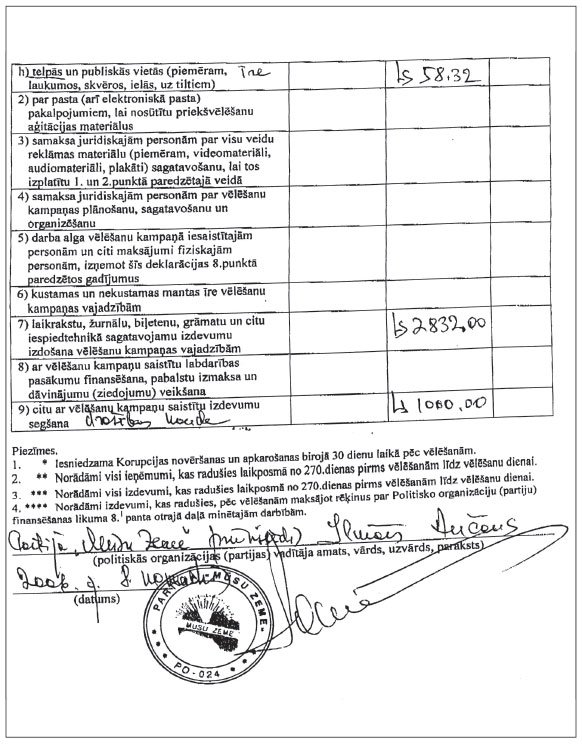 h) telpās un publiskās vietās (piemēram, īre
laukumos, skvēros, ielās, uz tiltiem)
Ls 58.32
2) par pasta (arī elektroniskā pasta)
pakalpojumiem, lai nosūtītu priekšvēlēšanu
aģitācijas materiālus
3) samaksa juridiskajām personām par visu veidu
reklāmas materiālu (piemēram, videomateriāli,
audiomateriāli, plakāti) sagatavošanu, lai tos
izplatītu 1. un 2.punktā paredzētajā veidā
4) samaksa juridiskajām personām par vēlēšanu
kampaņas plānošanu, sagatavošanu un
organizēšanu
5) darba alga vēlēšanu kampaņā iesaistītajām
personām un citi maksājumi fiziskajām
personām, izņemot šīs deklarācijas 8.punktā
paredzētos gadījumus
6) kustamas un nekustamas mantas īre vēlēšanu
kampaņas vajadzībām
7) laikrakstu, žurnālu, biļetenu, grāmatu un citu
iespiedtehnikā sagatavojamu izdevumu
izdošana vēlēšanu kampaņas vajadzībām
Ls 2832,00
8) ar vēlēšanu kampaņu saistītu labdarības
pasākumu finansēšana, pabalstu izmaksa un
dāvinājumu (ziedojumu) veikšana
9) citu ar vēlēšanu kampaņu saistītu izdevumu
segšana drošības nauda
Ls 1000,00
Piezīmes.
1. * Iesniedzama Korupcijas novēršanas un apkarošanas birojā 30 dienu laikā pēc vēlēšanām.
2. ** Norādāmi visi ieņēmumi, kas radušies laikposmā no 270.dienas pirms vēlēšanām līdz vēlēšanu dienai.
3. *** Norādāmi visi izdevumi, kas radušies laikposmā no 270.dienas pirms vēlēšanām līdz vēlēšanu dienai.
4. **** Norādāmi izdevumi, kas radušies, pēc vēlēšanām maksājot rēķinus par Politisko organizāciju (partiju)
finansēšanas likuma 8.¹ panta otrajā daļā minētajām darbībām.
Partija "Mūsu Zeme"
(politiskās organizācijas (partijas) vadītāja amats, vārds, uzvārds, paraksts)
(datums)
PARTIJA "MŪSU ZEME"
MŪSU ZEME
PO-024